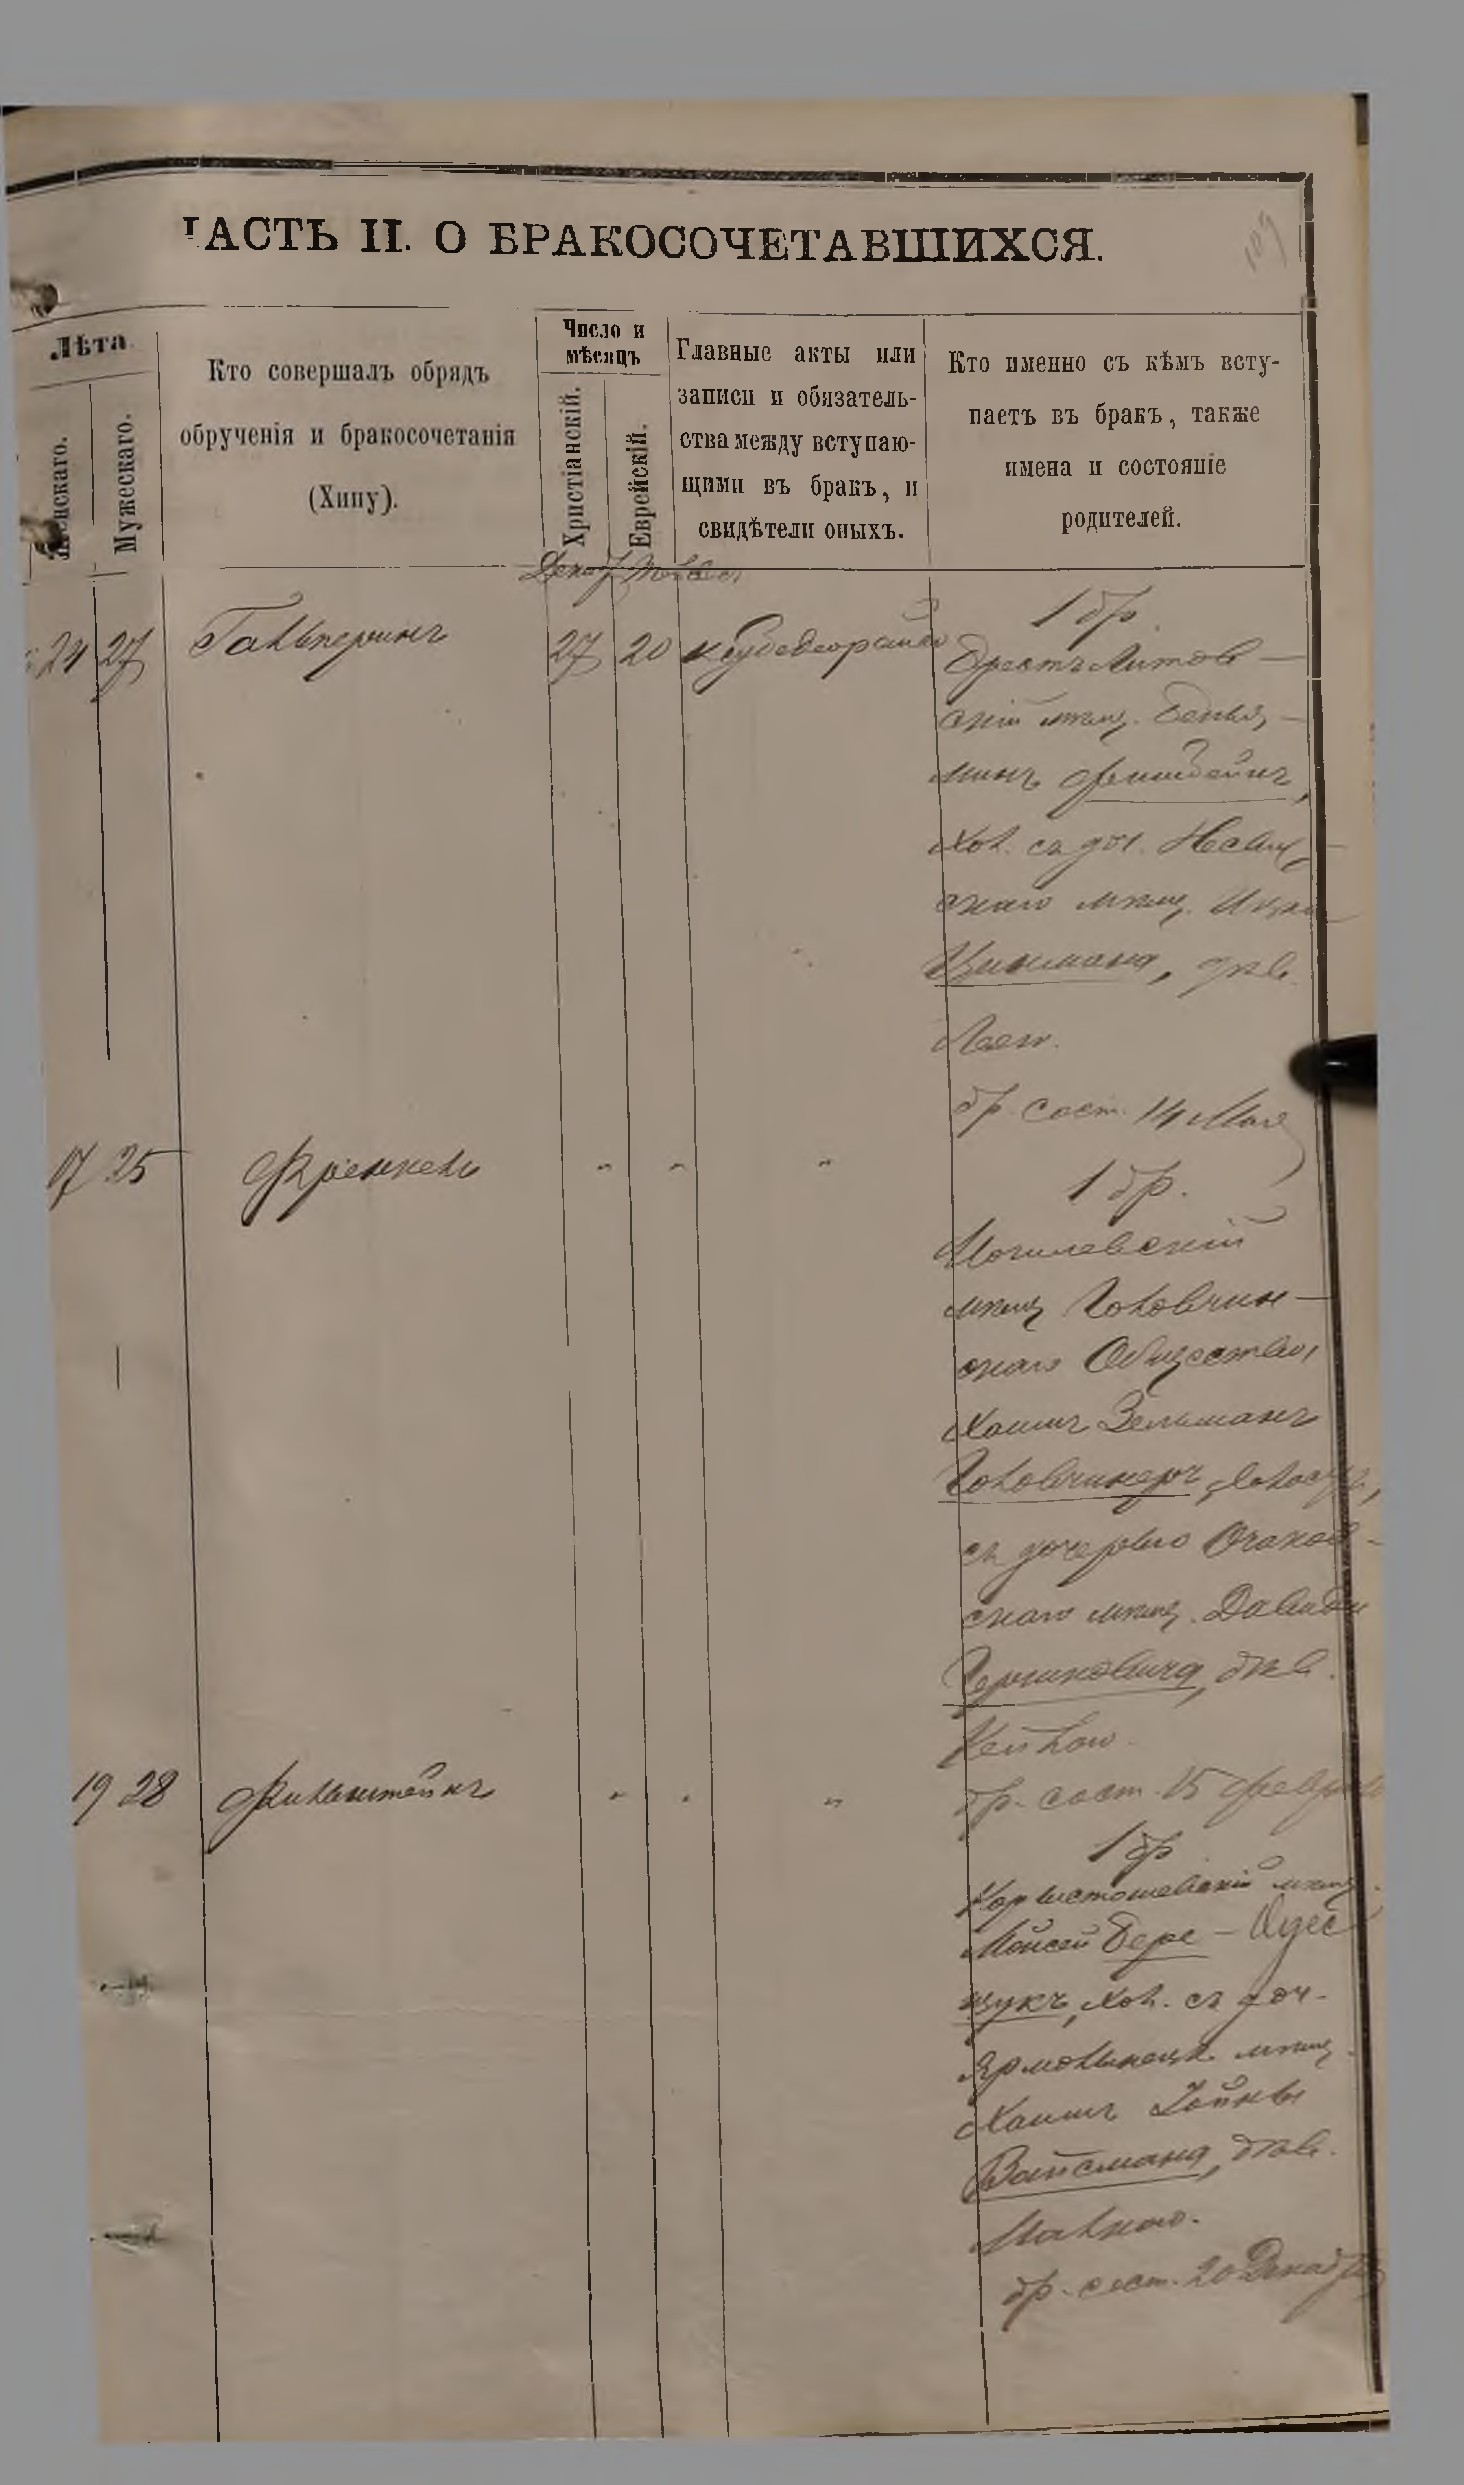 ЧАСТЬ II. О БРАКОСОЧЕТАВШИХСЯ.
Лѣта
Женскаго.
Мужескаго.
Кто совершалъ обрядъ
обрученія и бракосочетанія
(Хипу).
Число и
мѣсяцъ
Христіанскій.
Еврейскій.
Главные акты или
записи и обязатель-
ства между вступаю-
щими въ бракъ, и
свидѣтели оныхъ.
Кто именно съ кѣмъ всту-
паетъ въ бракъ, также
имена и состояніе
родителей.
24 27 Гальперинъ 27 20
1 бр.
Брестъ Литов-
скій мѣщ. Бенья-
минъ
хол. съ доч.
скаго мѣщ. Ицка
дѣв.
Леею.
бр. сост. 14 Мая
17 25 Френкель " " "
1 бр.
Могилевскій
мѣщ. Головчин-
скаго Общества,
Хаимъ Зельманъ
Головчинеръ, холост,
съ дочерью Очаков-
скаго мѣщ. Давида
Гершковича, дѣв.
Кейлою.
бр. сост. 15 Февраля
19 28 Финкельштейнъ " " "
1 бр.
мѣщ.
Мойсей Бере-
щукъ, хол. съ доч.
Ярмолинецк. мѣщ.
Хаимъ Іойны
Вайсмана, дѣв.
Малкою.
бр. сост. 20 Декабря